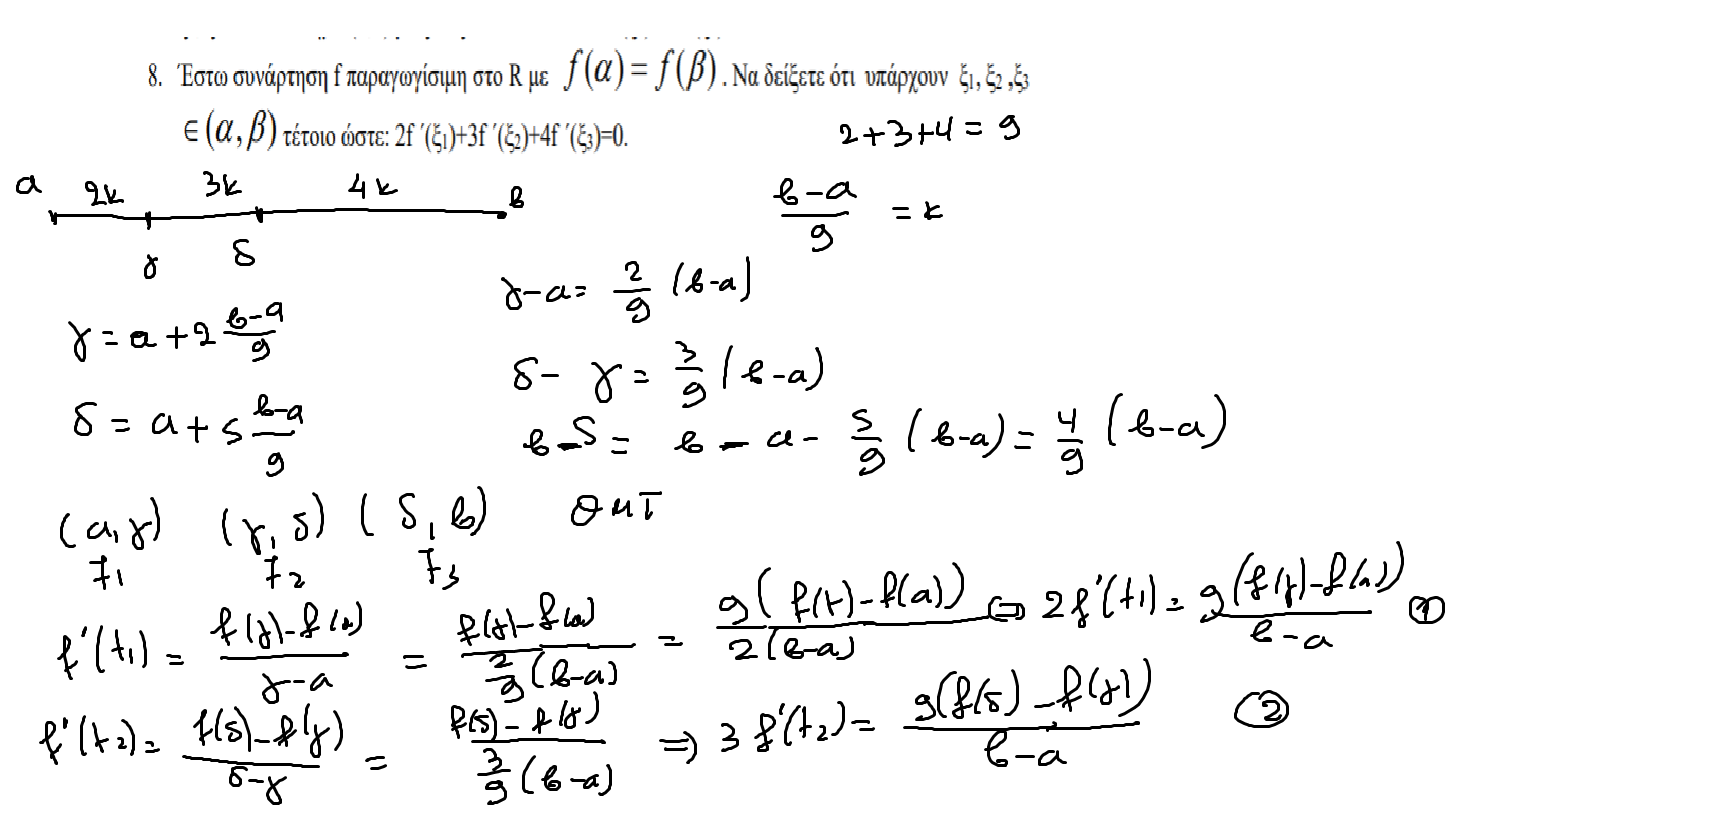 8. Έστω συνάρτηση f παραγωγίσιμη στο R με f(α) = f(β). Να δείξετε ότι υπάρχουν ξ₁, ξ₂ ,ξ₃
∈ (α, β) τέτοιο ώστε: 2f ´(ξ₁)+3f ´(ξ₂)+4f ´(ξ₃)=0.
2+3+4 = 9
a 2κ 3κ 4κ β
γ δ
(β-a)/9 = κ
γ-a = 2/9 (β-a)
γ = a + 2 (β-a)/9
δ - γ = 3/9 (β-a)
δ = a + 5 (β-a)/9
β - δ = β - a - 5/9 (β-a) = 4/9 (β-a)
(a, γ) (γ, δ) (δ, β) ΘΜΤ
ξ₁ ξ₂ ξ₃
f'(ξ₁) = (f(γ)-f(a))/(γ-a) = (f(γ)-f(a))/(2/9 (β-a)) = 9(f(γ)-f(a))/(2(β-a)) ⇔ 2f'(ξ₁) = 9(f(γ)-f(a))/(β-a) ①
f'(ξ₂) = (f(δ)-f(γ))/(δ-γ) = (f(δ)-f(γ))/(3/9 (β-a)) ⇒ 3f'(ξ₂) = 9(f(δ)-f(γ))/(β-a) ②